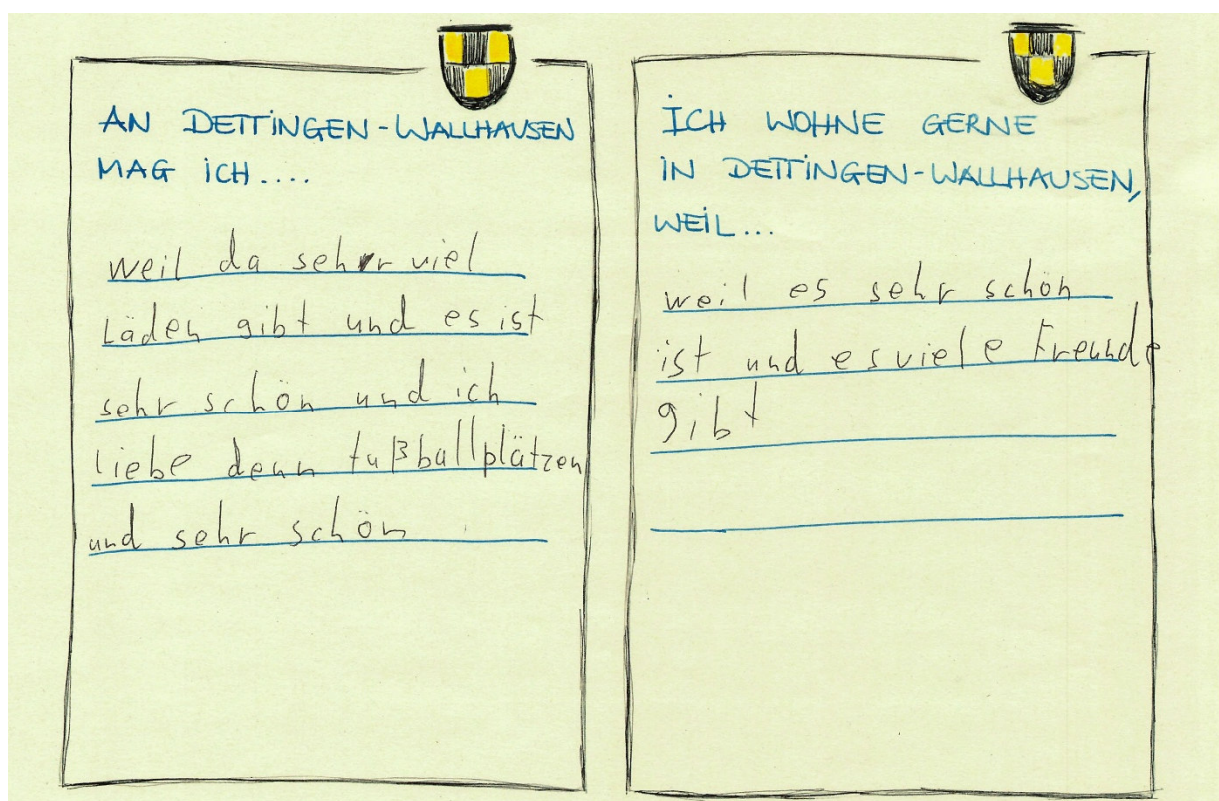 AN DETTINGEN-WALLHAUSEN
MAG ICH....
weil da sehr viel
Läden gibt und es ist
sehr schön und ich
liebe denn fußballplätzen
und sehr schön
ICH WOHNE GERNE
IN DETTINGEN-WALLHAUSEN,
WEIL...
weil es sehr schön
ist und es viele Freunde
gibt